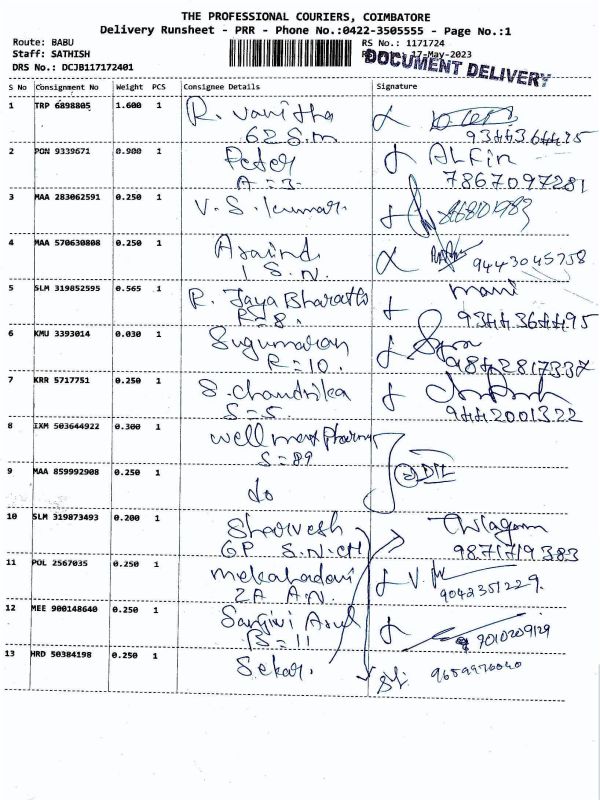 THE PROFESSIONAL COURIERS, COIMBATORE
Delivery Runsheet - PRR - Phone No.:0422-3505555 - Page No.:1
Route: BABU
RS No.: 1171724
Staff: SATHISH
17-May-2023
DOCUMENT DELIVERY
DRS No.: DCJB117172401
S No Consignment No Weight PCS Consignee Details Signature
1 TRP 6898805 1.600 1 R. Vanitha
62 S.M 9344364495
2 PON 9339671 0.900 1 Peter ALFin
A = 3 7867097281
3 MAA 283062591 0.250 1 V. S. Kumar
4 MAA 570630808 0.250 1 Aravind
1 S.N. 9443045758
5 SLM 319852595 0.565 1 R. Jaya Bharathi mani
R = 8. 9344364495
6 KMU 3393014 0.030 1 Sugumaran
R = 10. 9842817337
7 KRR 5717751 0.250 1 S. Chandrika
S = 5 9442001322
8 IXM 503644922 0.300 1 Wellmax Pharma
S = 89
9 MAA 859992908 0.250 1 do
10 SLM 319873493 0.200 1 Sharvesh
GP S.N.CH 9871719383
11 POL 2567035 0.250 1
2A A.N. 9042351229.
12 MEE 900148640 0.250 1 Sangivi Arul
B = 11 9010209129
13 HRD 50384198 0.250 1 Sekar.
9659976040